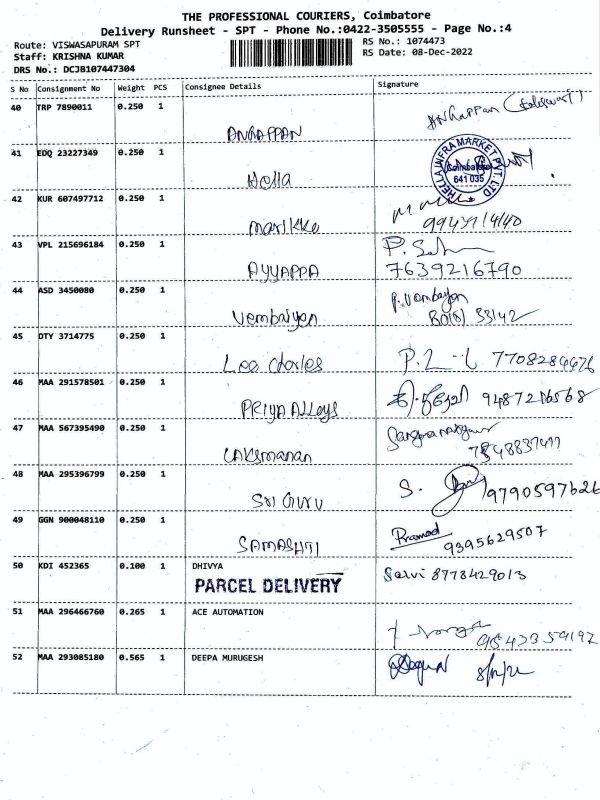 THE PROFESSIONAL COURIERS, Coimbatore
Delivery Runsheet - SPT - Phone No.:0422-3505555 - Page No.:4
Route: VISWASAPURAM SPT
RS No.: 1074473
Staff: KRISHNA KUMAR
RS Date: 08-Dec-2022
DRS No.: DCJB107447304
S No Consignment No Weight PCS Consignee Details Signature
40 TRP 7890011 0.250 1 ANGAPPAN ANGAPPAN
41 EDQ 23227349 0.250 1 Hella
HELLA INFRA MARKET PVT. LTD
Coimbatore
641 035
42 KUR 607497712 0.250 1 Marikke
43 VPL 215696184 0.250 1 AYYAPPA
7639216790
44 ASD 3450080 0.250 1 Vembaiyan P. Vembaiyan
45 DTY 3714775 0.250 1 Leo charles 7708284426
46 MAA 291578501 0.250 1 PRIYA ALLOYS 9487216568
47 MAA 567395490 0.250 1 LAKSMANAN
48 MAA 295396799 0.250 1 SRI GURU S. 9790597626
49 GGN 900048110 0.250 1 SAMASHTI Pramod
9395629507
50 KDI 452365 0.100 1 DHIVYA Selvi 8778429013
PARCEL DELIVERY
51 MAA 296466760 0.265 1 ACE AUTOMATION
52 MAA 293085180 0.565 1 DEEPA MURUGESH